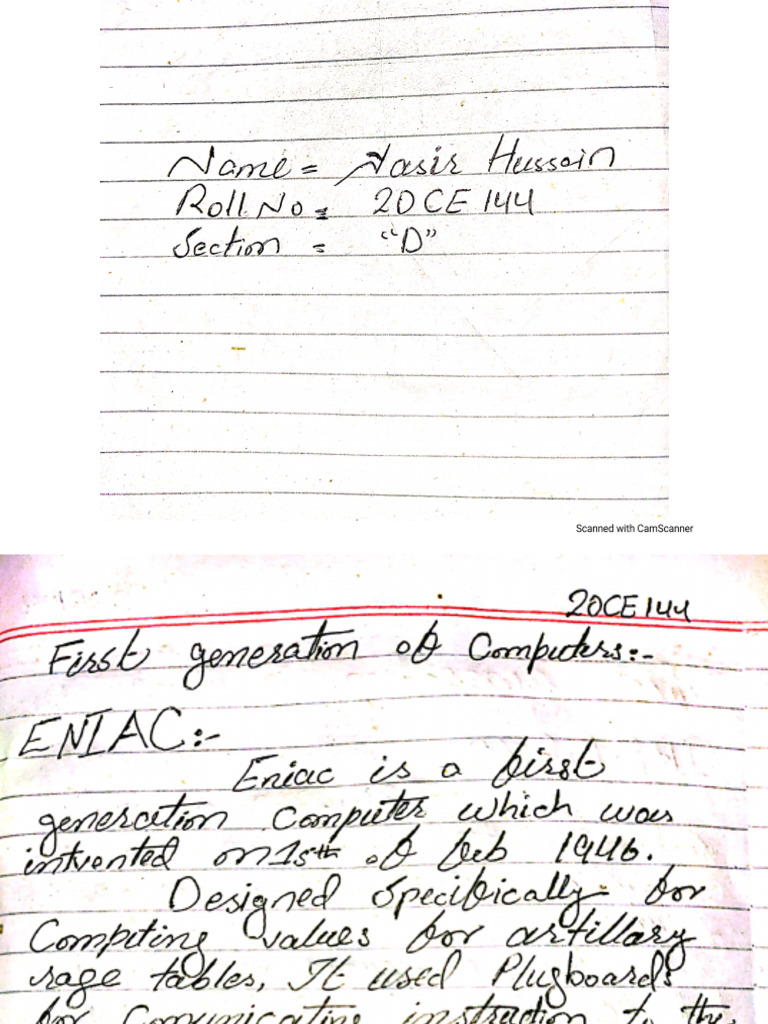 Name = Nasir Hussain
Roll No = 20CE144
Section = "D"
Scanned with CamScanner
20CE144
First generation of Computers:-
ENIAC:-
Eniac is a first
generation Computer which was
intvented on 15th of feb 1946.
Designed specifically for
Computing values for artillary
rage tables, It used Plugboards
for Comunicating instruction to the